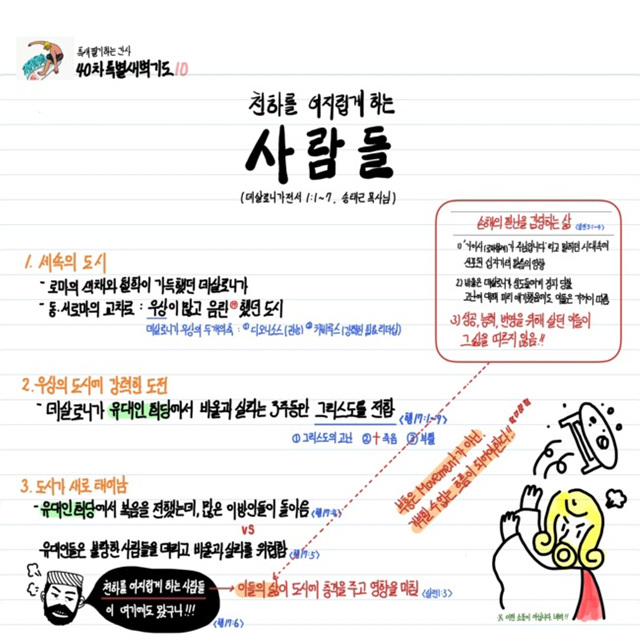 특새 필기하는 간사
40차 특별새벽기도 10
천하를 어지럽게 하는
사람들
(데살로니가전서 1:1~7. 송태근 목사님)
1. 세속의 도시
- 로마의 색채와 철학이 가득했던 데살로니가
- 동.서로마의 고치로 : 우상이 많고 음란했던 도시
데살로니가 우상의 두 개의 축 : ① 디오니소스 (관능) ② 카비루스
2. 우상의 도시에 강력한 도전
- 데살로니가 유대인 회당에서 바울과 실라는 3주동안 그리스도를 전함 <행17:1~9>
① 그리스도의 고난 ② 죽음 ③ 부활
3. 도시가 새로 태어남
- 유대인 회당에서 복음을 전했는데, 많은 이방인들이 돌아옴 <행17:4>
VS
유대인들은 불량한 사람들을 데리고 바울과 실라를 위협함 <행17:5>
천하를 어지럽게 하는 사람들
이 여기에도 왔구나!!!
<행17:6>
이들의 삶이 도시에 충격을 주고 영향을 미침 <살전1:3>
손해와 환난을 감당하는 삶 <살전3:1~4>
1)
2) 바울은 데살로니가 성도들에게 장차 당할
고난에 대해 미리 얘기했음에도 이들은 기꺼이 따름
3) 성공, 능력, 번영을 위해 살던 이들이
그 삶을 따르지 않음!!
복음은 Movement가 아닌,
거역할 수 없는 흐름이 되어야한다!!
※ 이런 소동이 아닙니다